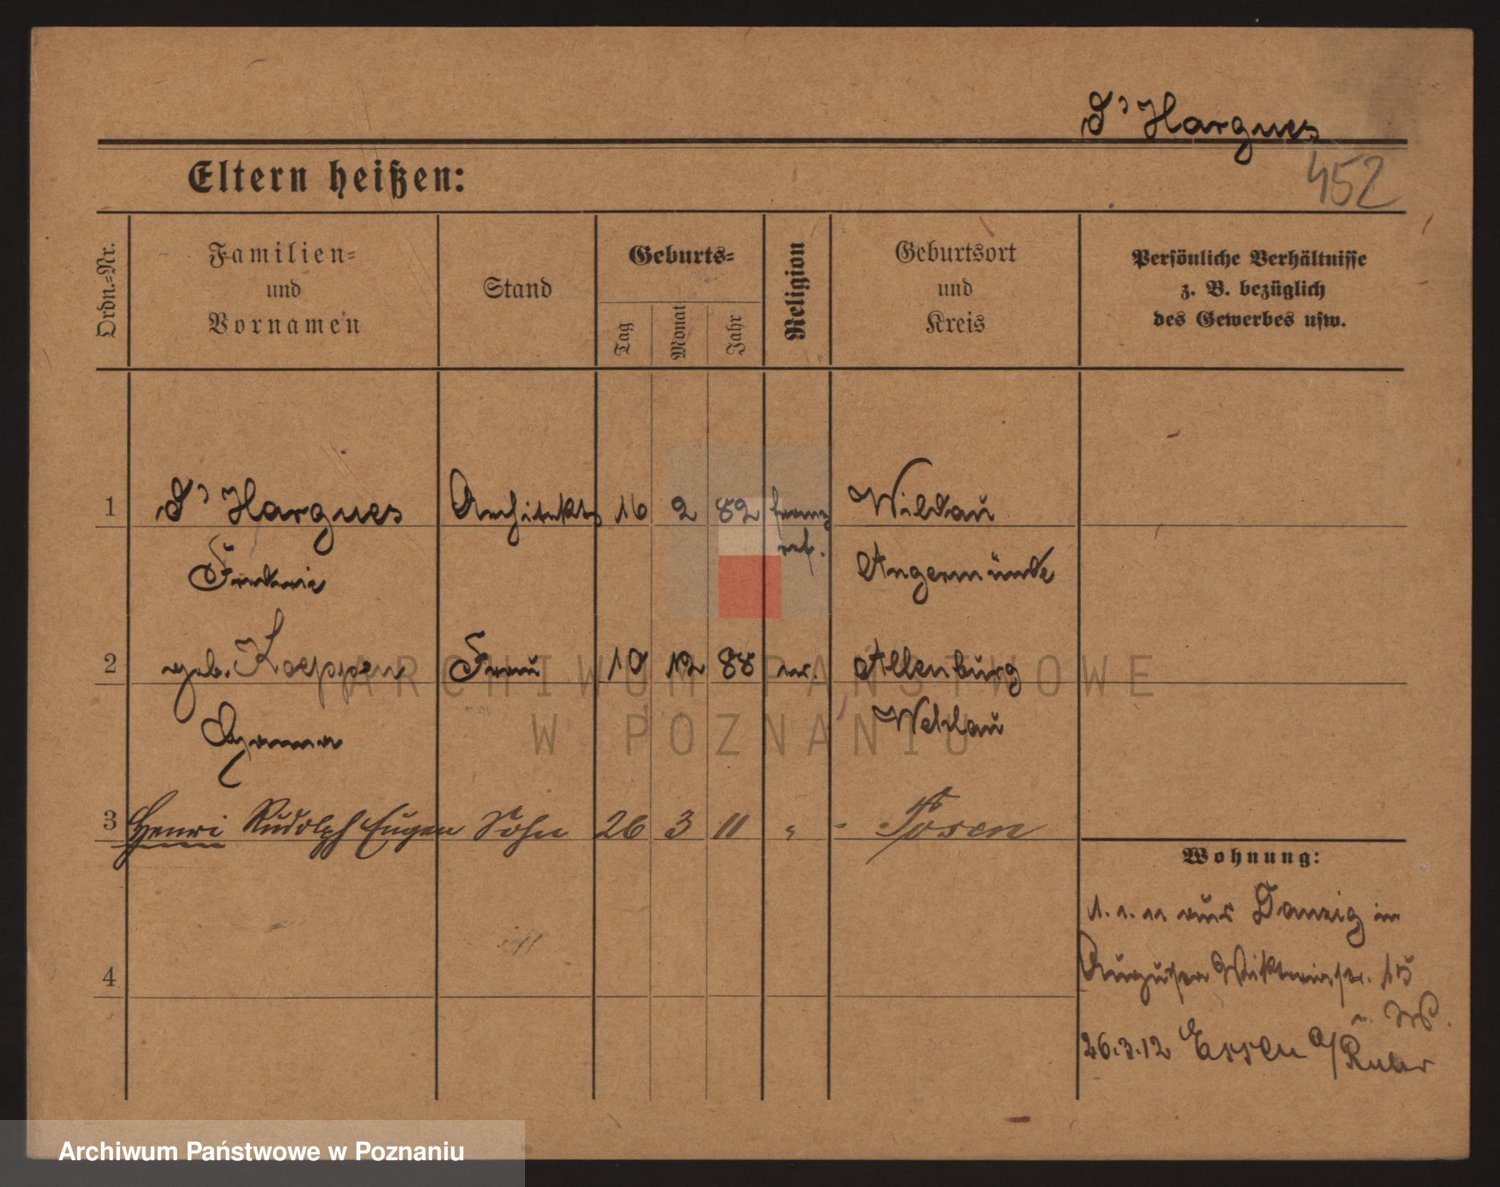 D'Hargues
452
Eltern heißen:
Ordn.-Nr.
Familien-
und
Vornamen
Stand
Geburts-
Tag
Monat
Jahr
Religion
Geburtsort
und
Kreis
Persönliche Verhältnisse
z. B. bezüglich
des Gewerbes usw.
1 D'Hargues Architekt 16 2 82 franz Wildau
ref.
Frederic Angermünde
2 geb. Koeppen Frau 19 12 88 ev. Allenburg
Wehlau
3 Henri Rudolph Eugen Sohn 26 3 11 " Posen
Wohnung:
1. 1. 11 aus Danzig in
Augusta Viktoriastr. 15
4
26.3.12 Essen a/Ruhr
ARCHIWUM PAŃSTWOWE
W POZNANIU
Archiwum Państwowe w Poznaniu